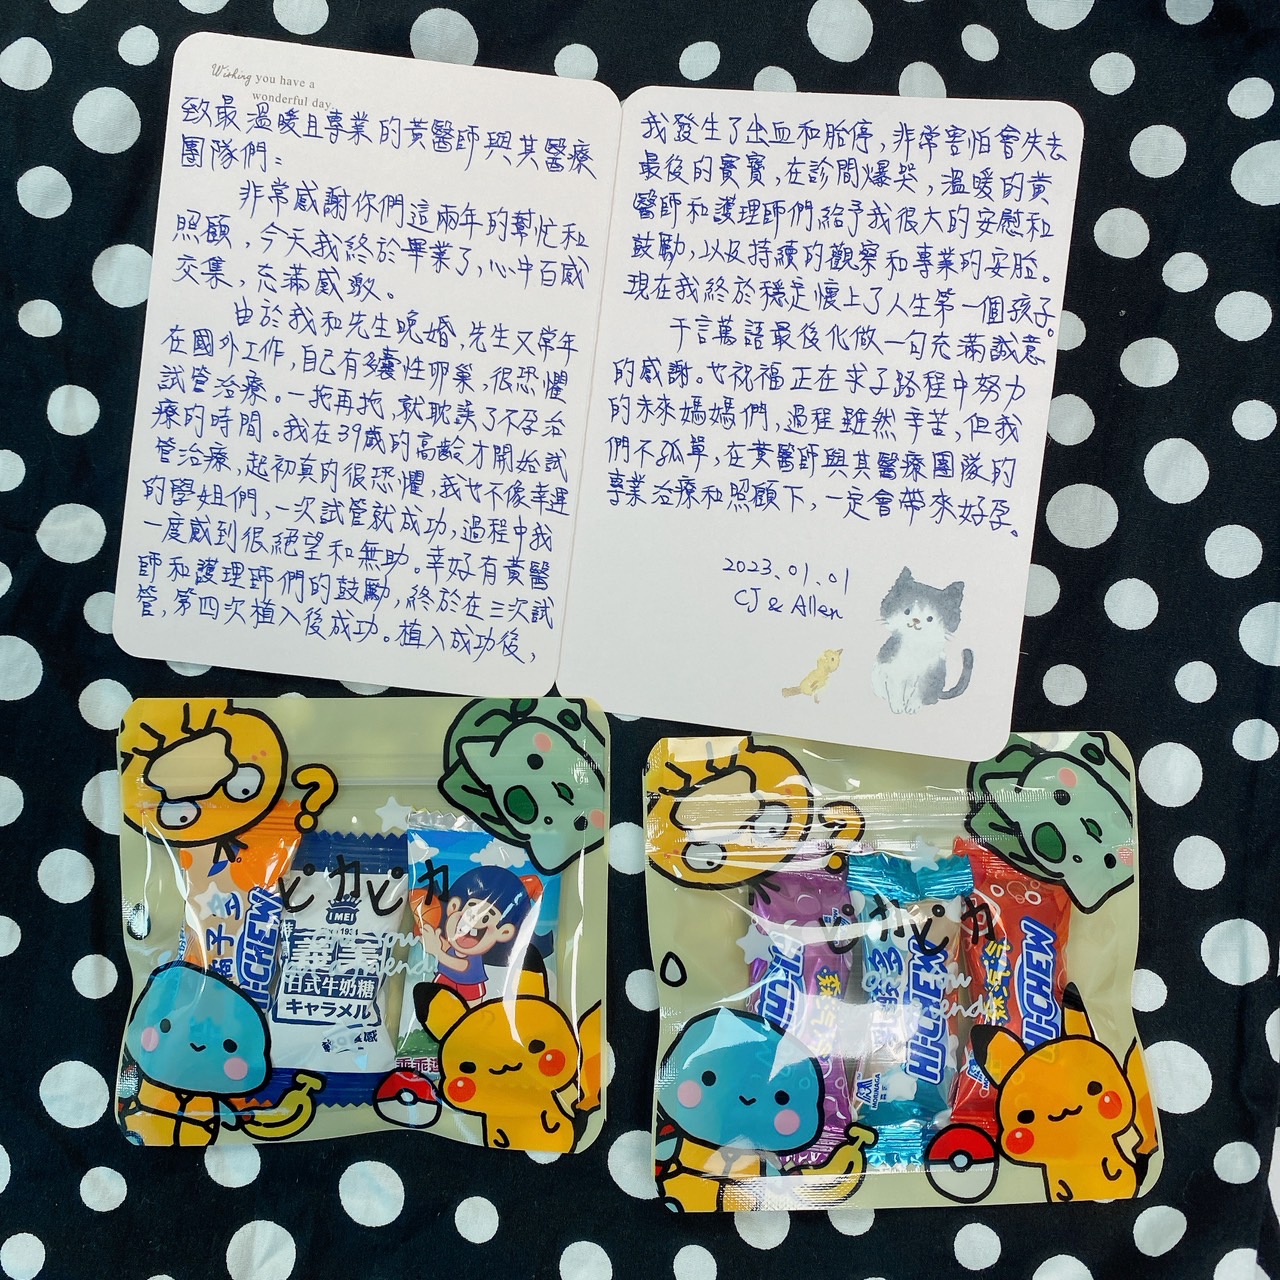 Wishing you have a
wonderful day.
致最溫暖且專業的黃醫師與其醫療
團隊們：
非常感謝你們這兩年的幫忙和
照顧，今天我終於畢業了，心中百感
交集，充滿感激。
由於我和先生晚婚，先生又常年
在國外工作，自己有多囊性卵巢，很恐懼
試管治療。一拖再拖，就耽誤了不孕治
療的時間。我在39歲的高齡才開始試
管治療，起初真的很恐懼，我也不像幸運
的學姐們，一次試管就成功，過程中我
一度感到很絕望和無助。幸好有黃醫
師和護理師們的鼓勵，終於在三次試
管，第四次植入後成功。植入成功後，
我發生了出血和胎停，非常害怕會失去
最後的寶寶，在診間爆哭，溫暖的黃
醫師和護理師們給予我很大的安慰和
鼓勵，以及持續的觀察和專業的安胎。
現在我終於穩定懷上了人生第一個孩子。
千言萬語最後化做一句充滿誠意
的感謝。也祝福正在求子路程中努力
的未來媽媽們，過程雖然辛苦，但我
們不孤單，在黃醫師與其醫療團隊的
專業治療和照顧下，一定會帶來好孕。
2023.01.01
CJ & Allen
ピカピカ
HI-CHEW
IMEI
義美
日式牛奶糖
キャラメル
乖乖
ピカピカ
HI-CHEW
HI-CHEW
MORINAGA
HI-CHEW